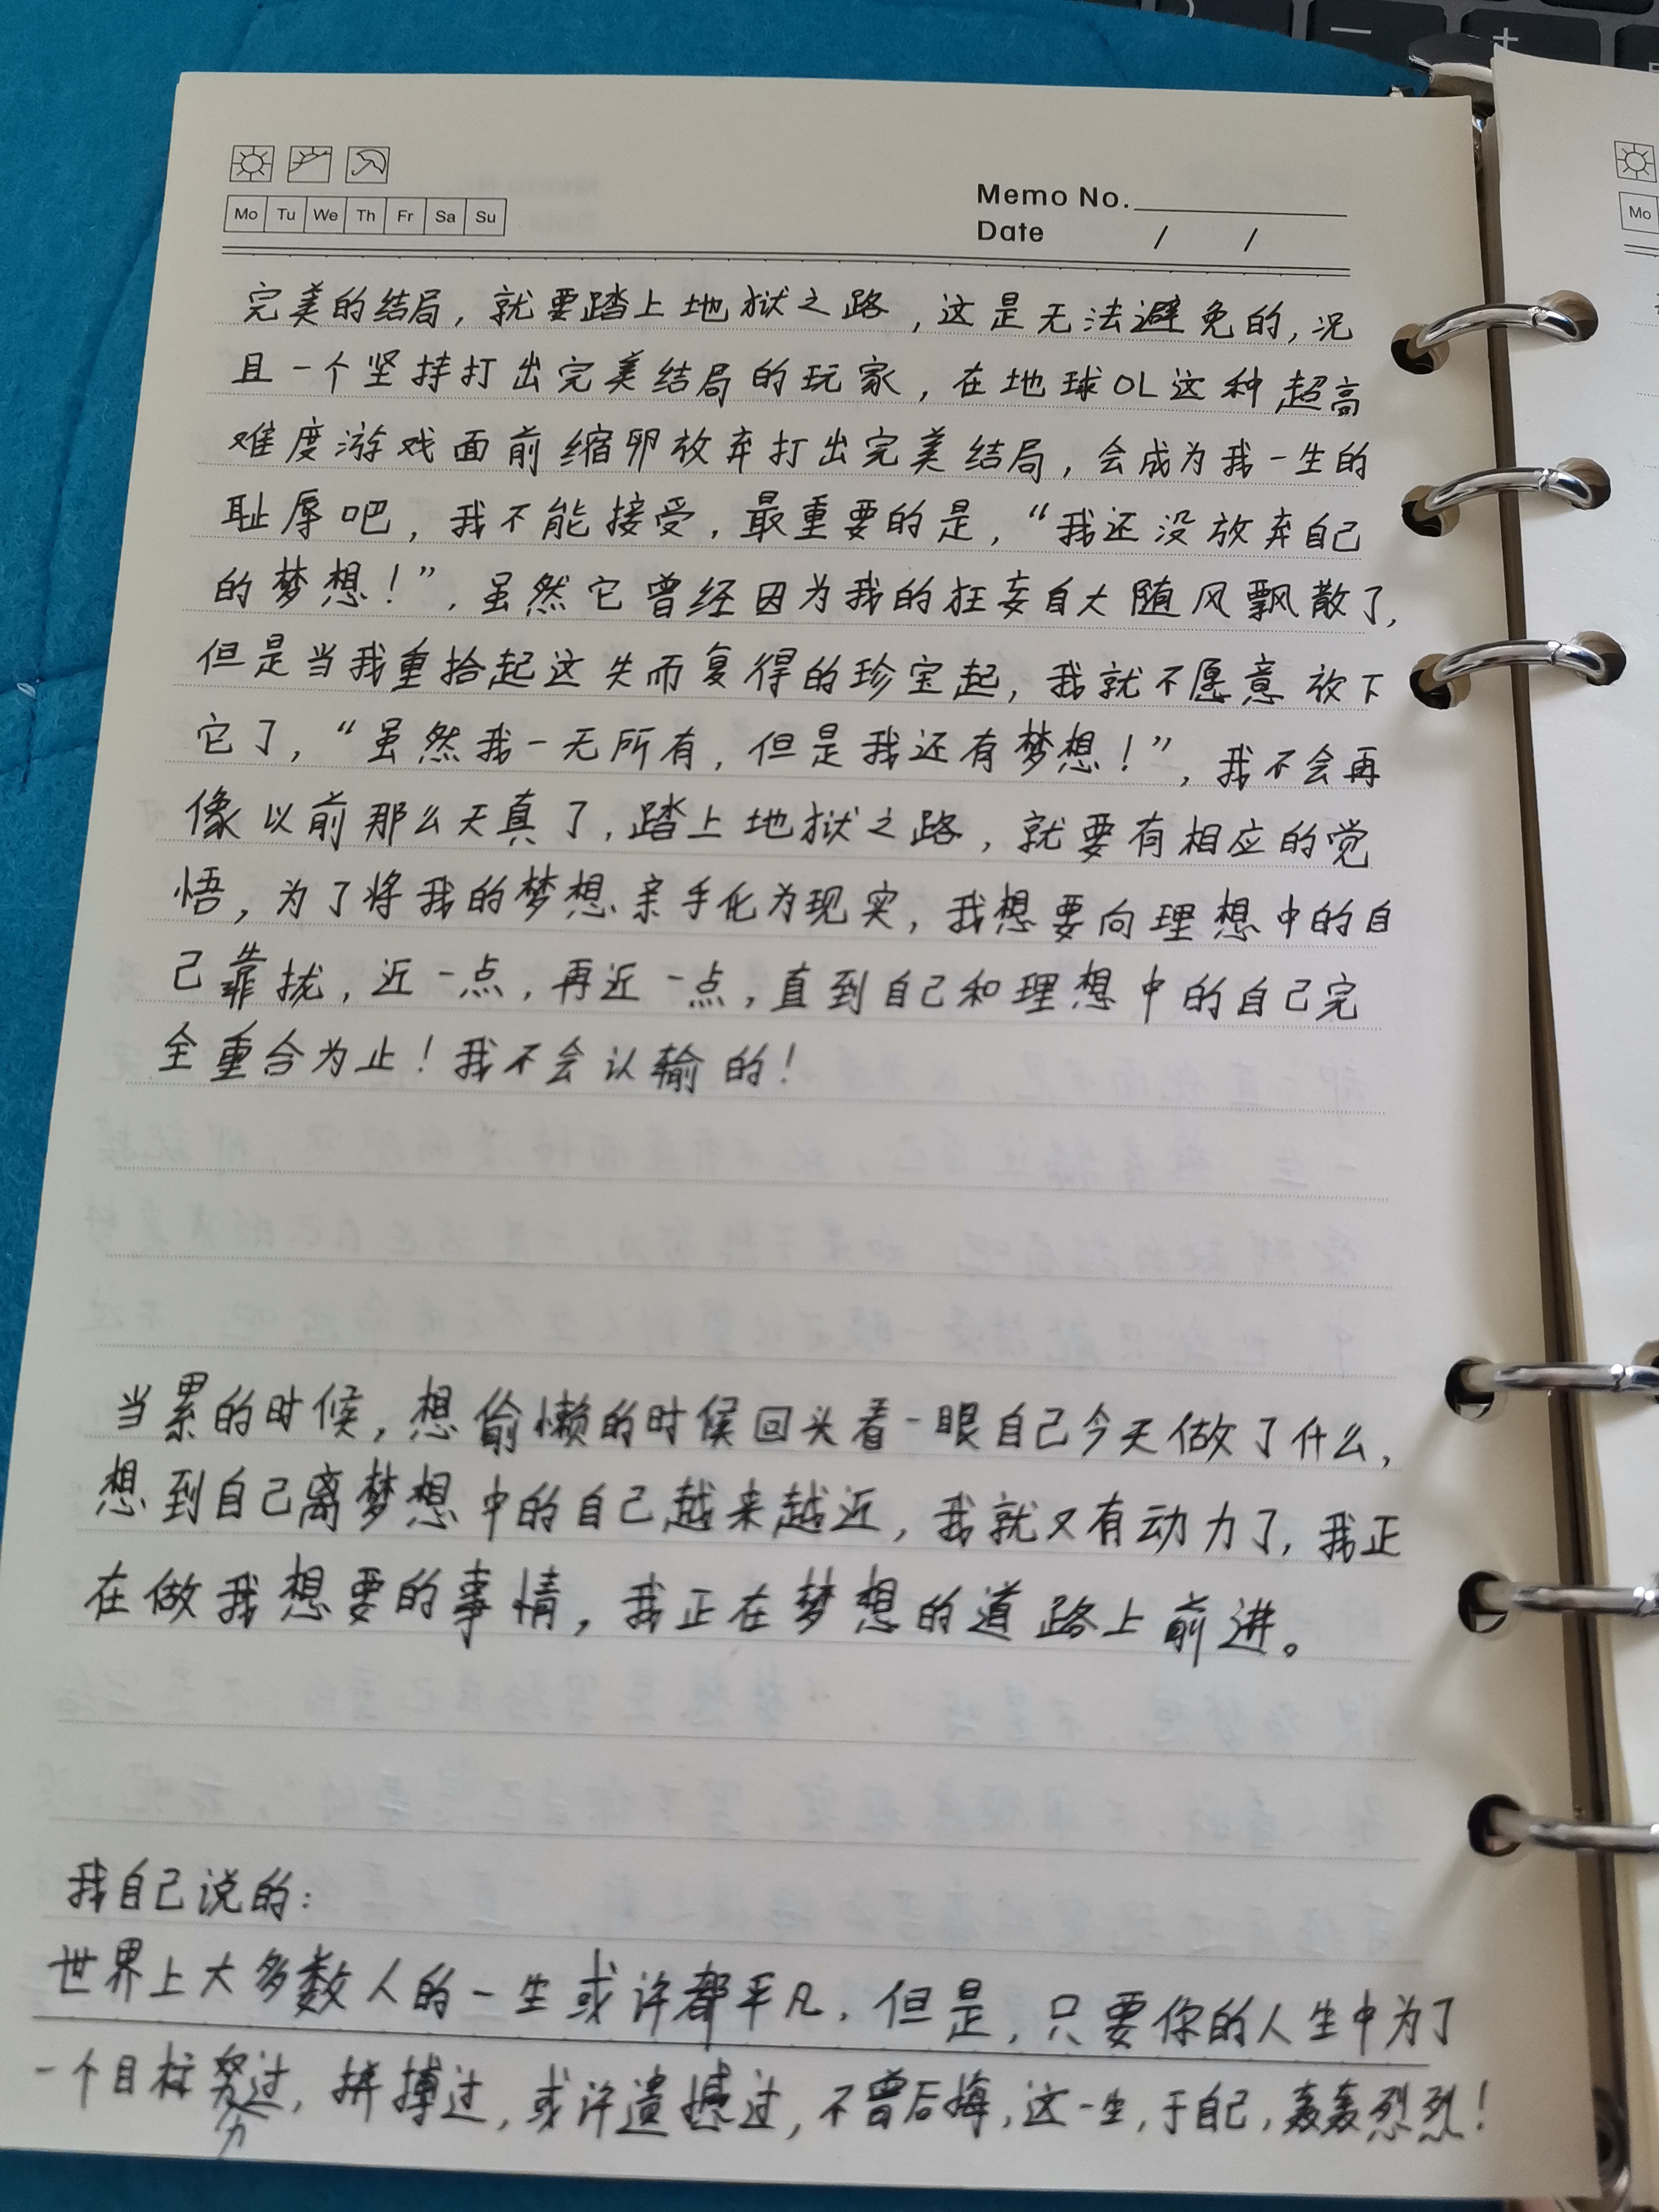 Mo Tu We Th Fr Sa Su
Memo No.
Date / /
完美的结局，就要踏上地狱之路，这是无法避免的，况
且一个坚持打出完美结局的玩家，在地球OL这种超高
难度游戏面前缩卵放弃打出完美结局，会成为我一生的
耻辱吧，我不能接受，最重要的是，“我还没放弃自己
的梦想！”，虽然它曾经因为我的狂妄自大随风飘散了，
但是当我重拾起这失而复得的珍宝起，我就不愿意放下
它了，“虽然我一无所有，但是我还有梦想！”，我不会再
像以前那么天真了，踏上地狱之路，就要有相应的觉
悟，为了将我的梦想亲手化为现实，我想要向理想中的自
己靠拢，近一点，再近一点，直到自己和理想中的自己完
全重合为止！我不会认输的！
当累的时候，想偷懒的时候回头看一眼自己今天做了什么，
想到自己离梦想中的自己越来越近，我就又有动力了，我正
在做我想要的事情，我正在梦想的道路上前进。
我自己说的：
世界上大多数人的一生或许都平凡，但是，只要你的人生中为了
一个目标努力过，拼搏过，或许遗憾过，不曾后悔，这一生，于自己，轰轰烈烈！
Mo